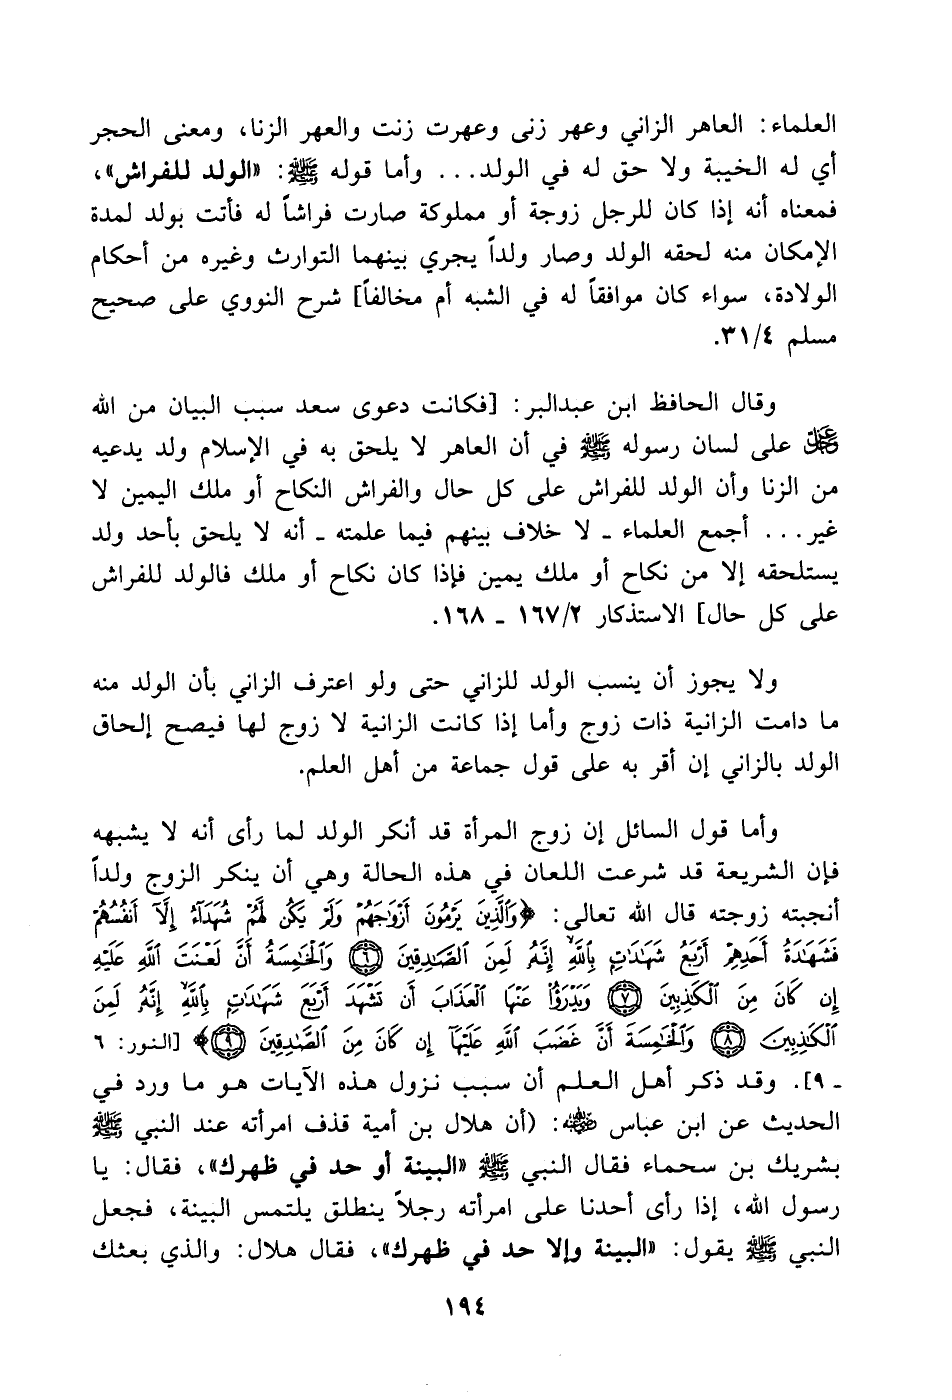 العلماء: العاهر الزاني وعهر زنى وعهرت زنت والعهر الزنا، ومعنى الحجر
أي له الخيبة ولا حق له في الولد... وأما قوله ﷺ: «الولد للفراش»،
فمعناه أنه إذا كان للرجل زوجة أو مملوكة صارت فراشاً له فأتت بولد لمدة
الإمكان منه لحقه الولد وصار ولداً يجري بينهما التوارث وغيره من أحكام
الولادة، سواء كان موافقاً له في الشبه أم مخالفاً] شرح النووي على صحيح
مسلم ٣١/٤.
وقال الحافظ ابن عبدالبر: [فكانت دعوى سعد سبب البيان من الله
عز وجل على لسان رسوله ﷺ في أن العاهر لا يلحق به في الإسلام ولد يدعيه
من الزنا وأن الولد للفراش على كل حال والفراش النكاح أو ملك اليمين لا
غير... أجمع العلماء ـ لا خلاف بينهم فيما علمته ـ أنه لا يلحق بأحد ولد
يستلحقه إلا من نكاح أو ملك يمين فإذا كان نكاح أو ملك فالولد للفراش
على كل حال] الاستذكار ١٦٧/٢ ـ ١٦٨.
ولا يجوز أن ينسب الولد للزاني حتى ولو اعترف الزاني بأن الولد منه
ما دامت الزانية ذات زوج وأما إذا كانت الزانية لا زوج لها فيصح إلحاق
الولد بالزاني إن أقر به على قول جماعة من أهل العلم.
وأما قول السائل إن زوج المرأة قد أنكر الولد لما رأى أنه لا يشبهه
فإن الشريعة قد شرعت اللعان في هذه الحالة وهي أن ينكر الزوج ولداً
أنجبته زوجته قال الله تعالى: ﴿وَٱلَّذِينَ يَرْمُونَ أَزْوَٰجَهُمْ وَلَمْ يَكُن لَّهُمْ شُهَدَآءُ إِلَّآ أَنفُسُهُمْ
فَشَهَٰدَةُ أَحَدِهِمْ أَرْبَعُ شَهَٰدَٰتٍۭ بِٱللَّهِ ۙ إِنَّهُۥ لَمِنَ ٱلصَّٰدِقِينَ ٦ وَٱلْخَٰمِسَةُ أَنَّ لَعْنَتَ ٱللَّهِ عَلَيْهِ
إِن كَانَ مِنَ ٱلْكَٰذِبِينَ ٧ وَيَدْرَؤُا۟ عَنْهَا ٱلْعَذَابَ أَن تَشْهَدَ أَرْبَعَ شَهَٰدَٰتٍۭ بِٱللَّهِ ۙ إِنَّهُۥ لَمِنَ
ٱلْكَٰذِبِينَ ٨ وَٱلْخَٰمِسَةَ أَنَّ غَضَبَ ٱللَّهِ عَلَيْهَآ إِن كَانَ مِنَ ٱلصَّٰدِقِينَ ٩﴾ [النور: ٦
ـ ٩]. وقد ذكر أهل العلم أن سبب نزول هذه الآيات هو ما ورد في
الحديث عن ابن عباس رضي الله عنه: (أن هلال بن أمية قذف امرأته عند النبي ﷺ
بشريك بن سحماء فقال النبي ﷺ «البينة أو حد في ظهرك»، فقال: يا
رسول الله، إذا رأى أحدنا على امرأته رجلاً ينطلق يلتمس البينة، فجعل
النبي ﷺ يقول: «البينة وإلا حد في ظهرك»، فقال هلال: والذي بعثك
١٩٤